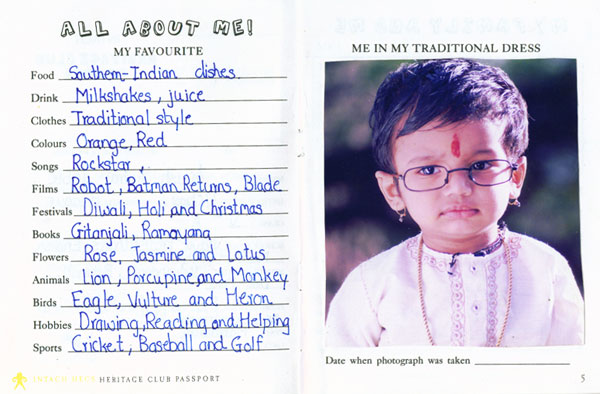 ALL ABOUT ME!
MY FAVOURITE
Food Southern-Indian dishes
Drink Milkshakes, juice
Clothes Traditional style
Colours Orange, Red
Songs Rockstar,
Films Robot, Batman Returns, Blade
Festivals Diwali, Holi and Christmas
Books Gitanjali, Ramayana
Flowers Rose, Jasmine and Lotus
Animals Lion, Porcupine and Monkey
Birds Eagle, Vulture and Heron
Hobbies Drawing, Reading and Helping
Sports Cricket, Baseball and Golf
HERITAGE CLUB PASSPORT
ME IN MY TRADITIONAL DRESS
Date when photograph was taken
5